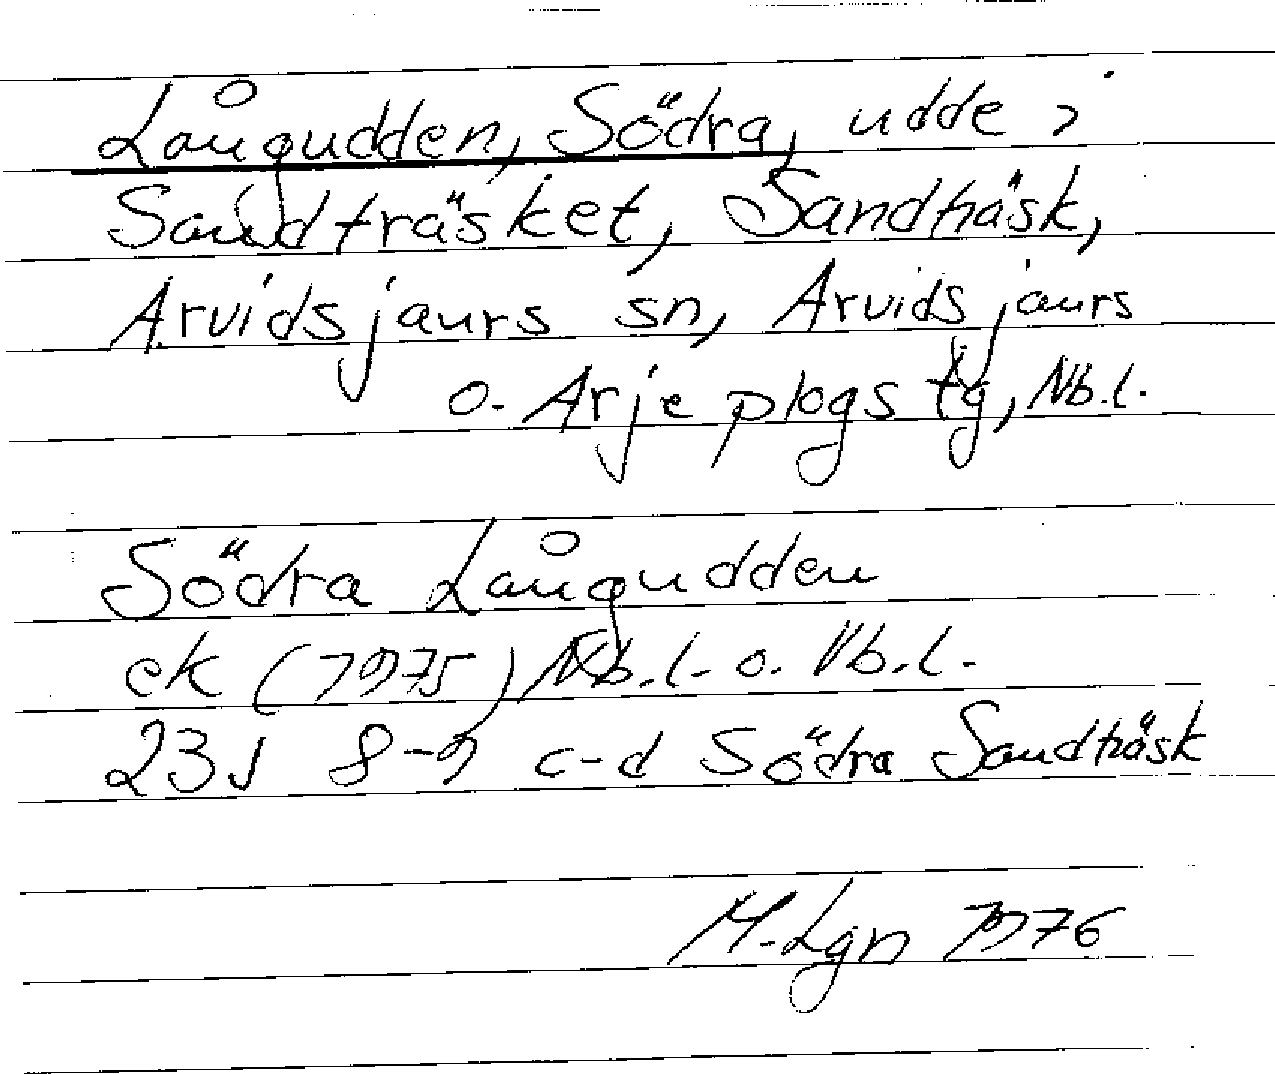 Långudden, Södra, udde i
Sandträsket, Sandträsk,
Arvidsjaurs sn, Arvidsjaurs
o. Arjeplogs tg, Nb.l.
Södra Långudden
ek (1975) Nb.l. o. Vb.l.
23J 8-9 c-d Södra Sandträsk
M. Lgn 1976